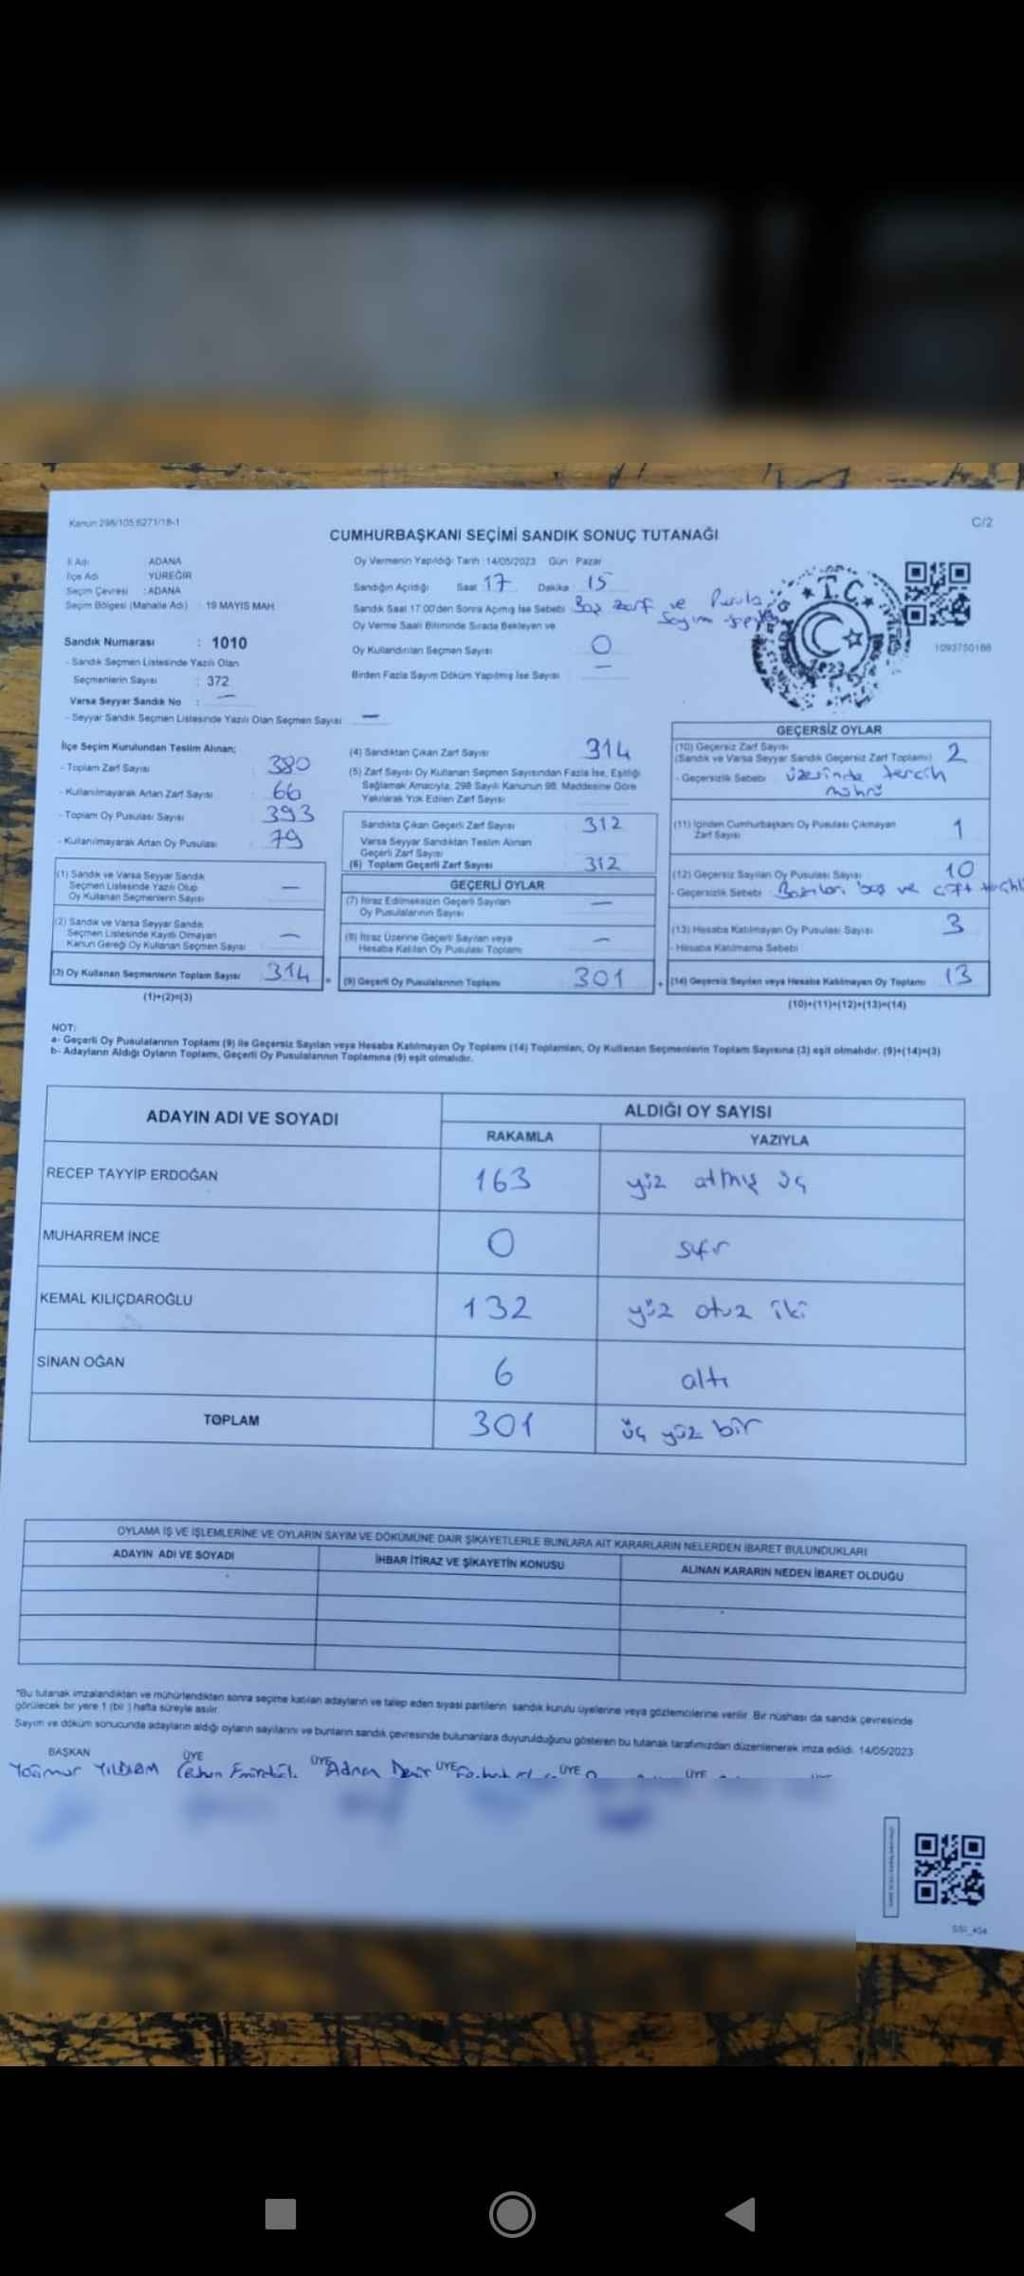 Kanun 298/105,6271/18-1
C/2
CUMHURBAŞKANI SEÇİMİ SANDIK SONUÇ TUTANAĞI
İl Adı : ADANA
İlçe Adı : YÜREĞİR
Seçim Çevresi : ADANA
Seçim Bölgesi (Mahalle Adı) : 19 MAYIS MAH.
Sandık Numarası : 1010
- Sandık Seçmen Listesinde Yazılı Olan
Seçmenlerin Sayısı : 372
Varsa Seyyar Sandık No : —
- Seyyar Sandık Seçmen Listesinde Yazılı Olan Seçmen Sayısı —
Oy Vermenin Yapıldığı Tarih : 14/05/2023 Gün : Pazar
Sandığın Açıldığı Saat 17 Dakika 15
Sandık Saat 17:00'den Sonra Açılmış İse Sebebi Boş zarf ve Pusula
Sayım
Oy Verme Saati Bitiminde Sırada Bekleyen ve
Oy Kullandırılan Seçmen Sayısı 0
Birden Fazla Sayım Döküm Yapılmış İse Sayısı —
T.C.
1093750186
İlçe Seçim Kurulundan Teslim Alınan;
- Toplam Zarf Sayısı 380
- Kullanılmayarak Artan Zarf Sayısı 66
- Toplam Oy Pusulası Sayısı 393
- Kullanılmayarak Artan Oy Pusulası 79
(1) Sandık ve Varsa Seyyar Sandık
Seçmen Listesinde Yazılı Olup
Oy Kullanan Seçmenlerin Sayısı —
(2) Sandık ve Varsa Seyyar Sandık
Seçmen Listesinde Kayıtlı Olmayan
Kanun Gereği Oy Kullanan Seçmen Sayısı —
(3) Oy Kullanan Seçmenlerin Toplam Sayısı 314 =
(1)+(2)=(3)
(4) Sandıktan Çıkan Zarf Sayısı 314
(5) Zarf Sayısı Oy Kullanan Seçmen Sayısından Fazla İse, Eşitliği
Sağlamak Amacıyla, 298 Sayılı Kanunun 98. Maddesine Göre
Yakılarak Yok Edilen Zarf Sayısı
Sandıkta Çıkan Geçerli Zarf Sayısı 312
Varsa Seyyar Sandıktan Teslim Alınan
Geçerli Zarf Sayısı
(6) Toplam Geçerli Zarf Sayısı 312
GEÇERLİ OYLAR
(7) İtiraz Edilmeksizin Geçerli Sayılan
Oy Pusulalarının Sayısı —
(8) İtiraz Üzerine Geçerli Sayılan veya
Hesaba Katılan Oy Pusulası Toplamı —
(9) Geçerli Oy Pusulalarının Toplamı 301 +
GEÇERSİZ OYLAR
(10) Geçersiz Zarf Sayısı
(Sandık ve Varsa Seyyar Sandık Geçersiz Zarf Toplamı) 2
- Geçersizlik Sebebi üzerinde tercih
mührü
(11) İçinden Cumhurbaşkanı Oy Pusulası Çıkmayan
Zarf Sayısı 1
(12) Geçersiz Sayılan Oy Pusulası Sayısı 10
- Geçersizlik Sebebi Bazıları boş ve çift tercihli
(13) Hesaba Katılmayan Oy Pusulası Sayısı 3
- Hesaba Katılmama Sebebi
(14) Geçersiz Sayılan veya Hesaba Katılmayan Oy Toplamı 13
(10)+(11)+(12)+(13)=(14)
NOT:
a- Geçerli Oy Pusulalarının Toplamı (9) ile Geçersiz Sayılan veya Hesaba Katılmayan Oy Toplamı (14) Toplamları, Oy Kullanan Seçmenlerin Toplam Sayısına (3) eşit olmalıdır. (9)+(14)=(3)
b- Adayların Aldığı Oyların Toplamı, Geçerli Oy Pusulalarının Toplamına (9) eşit olmalıdır.
ADAYIN ADI VE SOYADI
ALDIĞI OY SAYISI
RAKAMLA YAZIYLA
RECEP TAYYİP ERDOĞAN 163 yüz atmış üç
MUHARREM İNCE 0 sıfır
KEMAL KILIÇDAROĞLU 132 yüz otuz iki
SİNAN OĞAN 6 altı
TOPLAM 301 üç yüz bir
OYLAMA İŞ VE İŞLEMLERİNE VE OYLARIN SAYIM VE DÖKÜMÜNE DAİR ŞİKAYETLERLE BUNLARA AİT KARARLARIN NELERDEN İBARET BULUNDUKLARI
ADAYIN ADI VE SOYADI İHBAR İTİRAZ VE ŞİKAYETİN KONUSU ALINAN KARARIN NEDEN İBARET OLDUĞU
*Bu tutanak imzalandıktan ve mühürlendikten sonra seçime katılan adayların ve talep eden siyasi partilerin sandık kurulu üyelerine veya gözlemcilerine verilir. Bir nüshası da sandık çevresinde
görülecek bir yere 1 (bir) hafta süreyle asılır.
Sayım ve döküm sonucunda adayların aldığı oyların sayılarını ve bunların sandık çevresinde bulunanlara duyurulduğunu gösteren bu tutanak tarafımızdan düzenlenerek imza edildi. 14/05/2023
BAŞKAN ÜYE ÜYE ÜYE ÜYE ÜYE
YILDIRIM Adnan